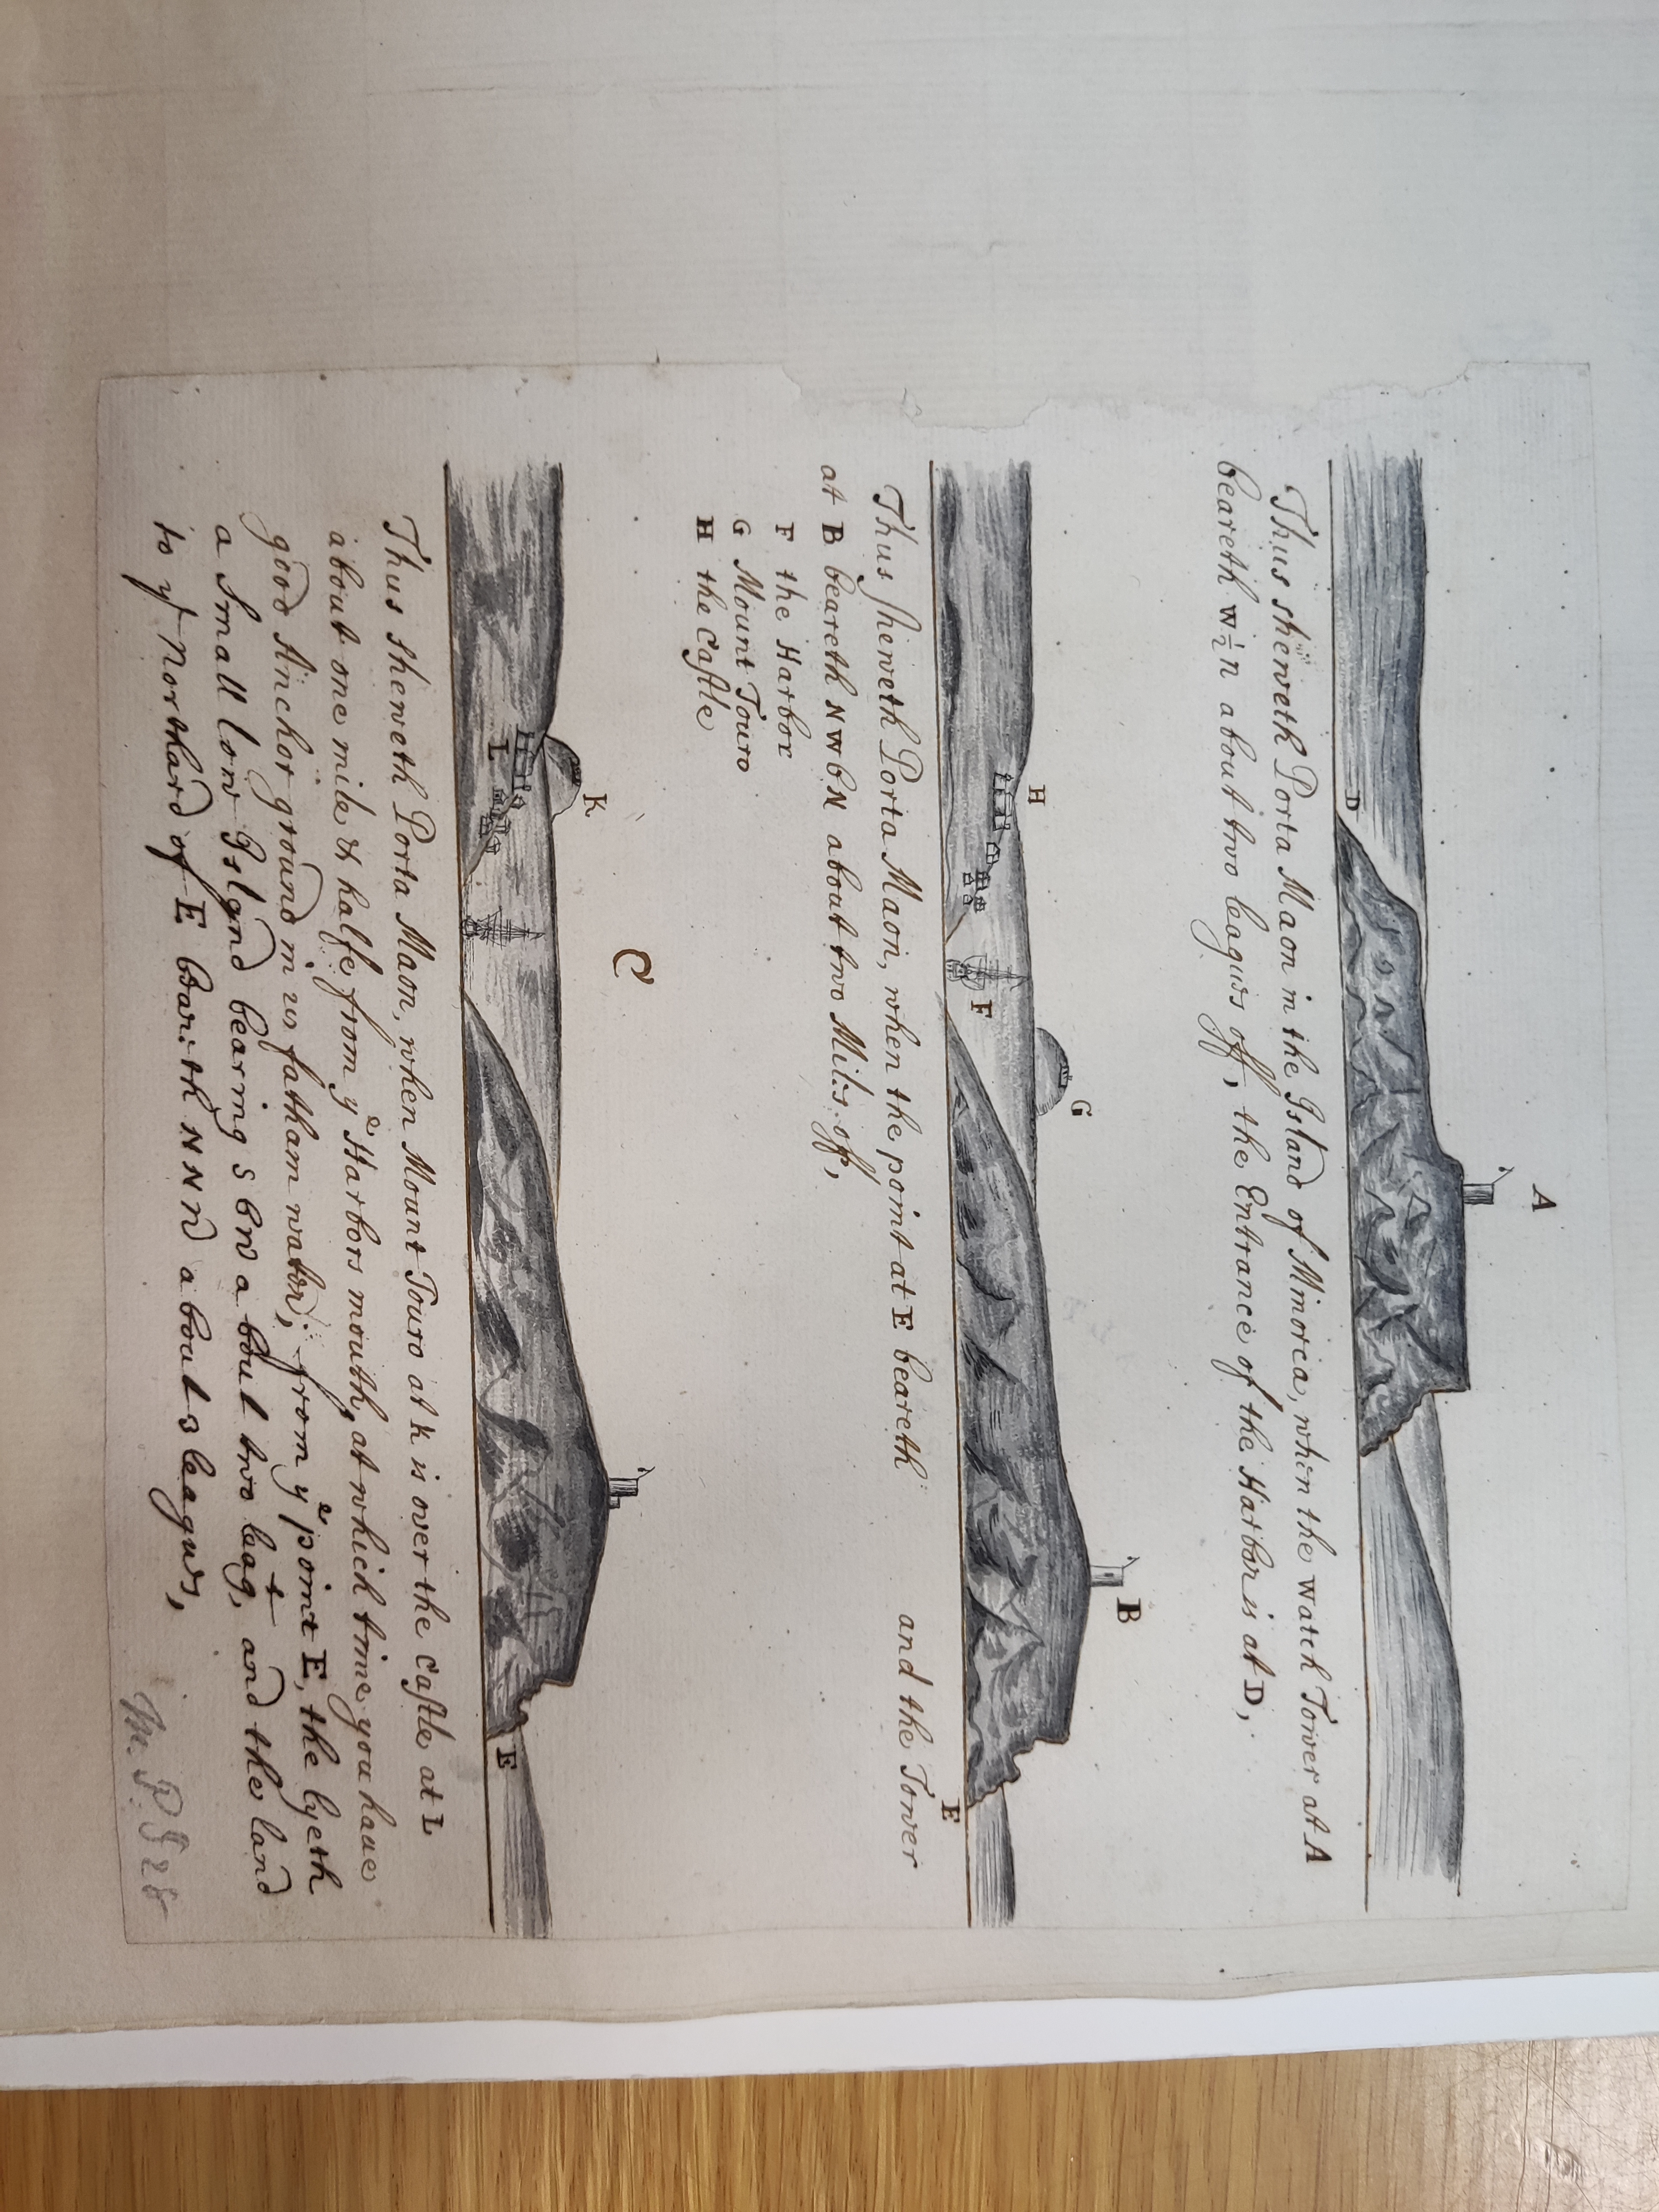 A
D
Thus sheweth Porta Maon in the Island of Minorca, when the watch Tower at A
beareth W½N about two leagues off, the Entrance of the Harbor is at D,
B
G
H
F
E
Thus sheweth Porta Maon, when the point at E beareth and the Tower
at B beareth NWbN about two Miles off,
F the Harbor
G Mount Touro
H the Castle
C
K
L
E
Thus sheweth Porta Maon, when Mount Touro at K is over the Castle at L
about one mile & halfe from yᵉ Harbors mouth, at which time you have
good Anchor ground in fatham water; from yᵉ point E, the lyeth
a Small low Island bearing SbW about two leagᵗ, and the land
to yᵉ Northard of E bareth NNW about 3 leagues,